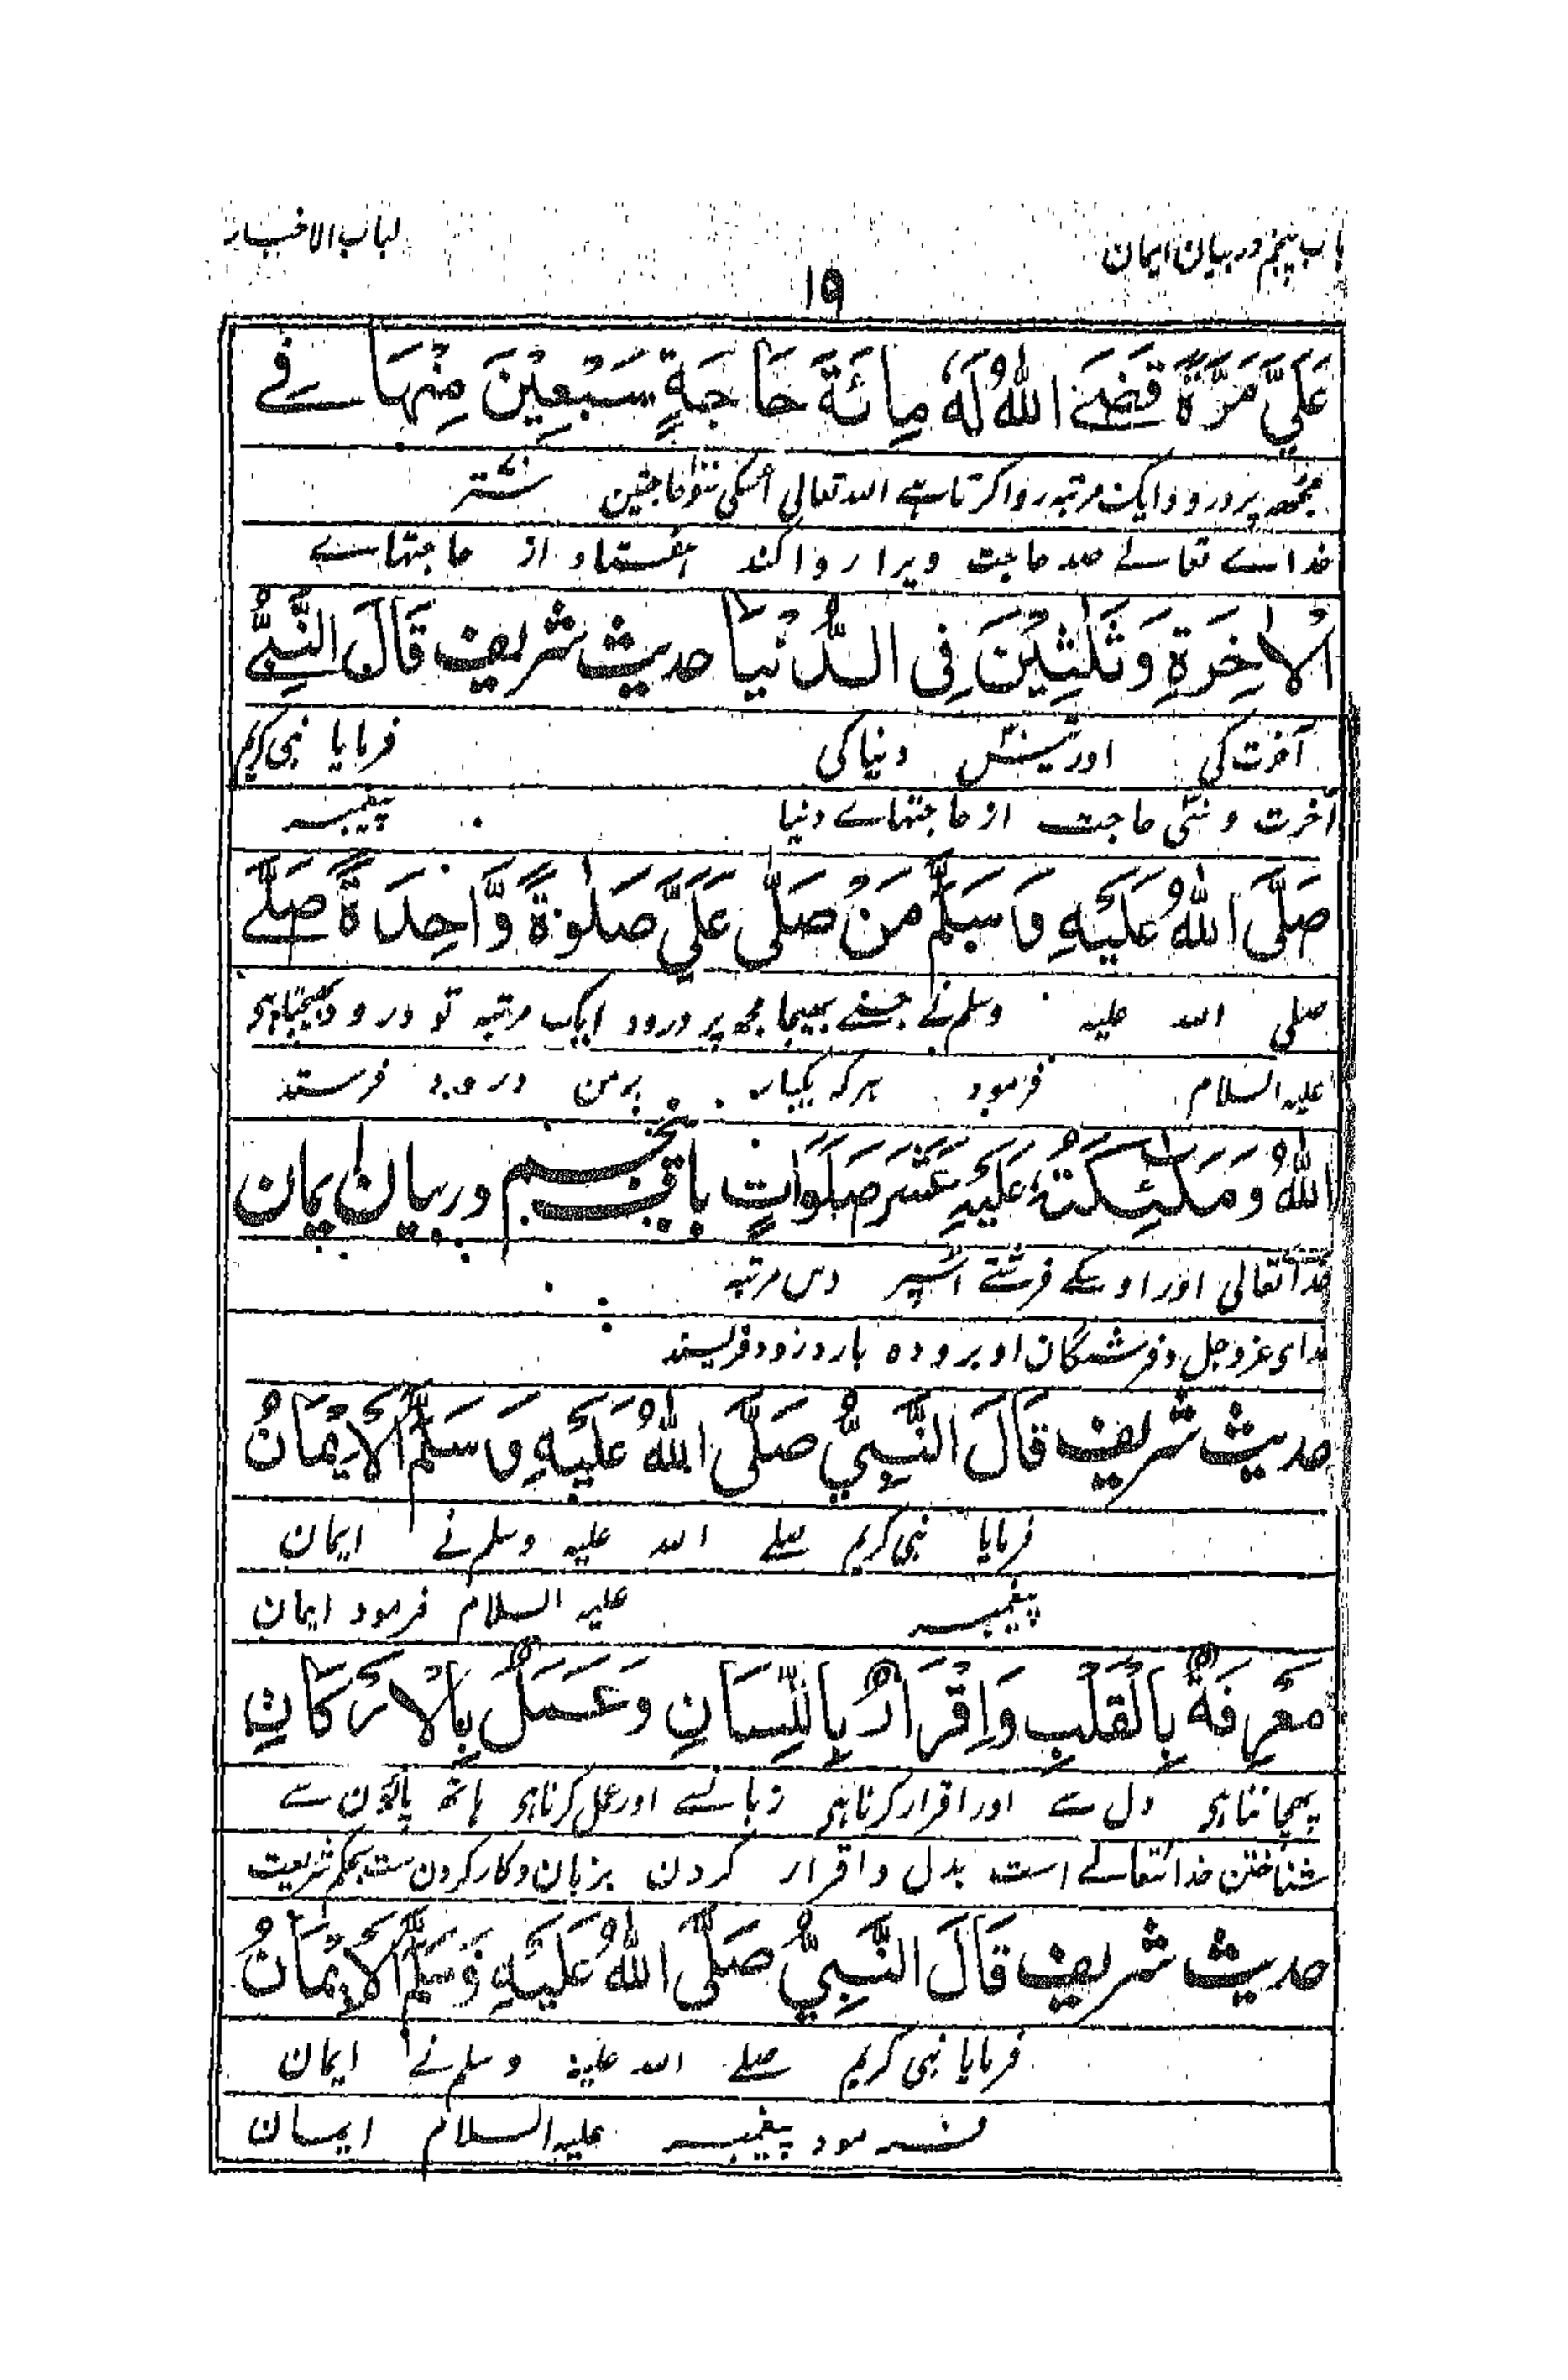 باب پنجم در بیان ایمان
لباب الاخبار
۱۹
عَلَیَّ مَرَّةً قَضَے اللّٰهُ لَهٗ مِائَةَ حَاجَةٍ سَبْعِیْنَ مِنْهَا فِے
مجھ پر درود ایک مرتبہ روا کرتا ہے اللہ تعالی اُسکی سَو حاجتین ستّر
خداے تعالے صد حاجت ویرا روا کند ہفتاد از حاجتہاے
الْاٰخِرَةِ وَثَلٰثِیْنَ فِی الدُّنْیَا حدیث شریف قَالَ النَّبِیُّ
آخرت کی اور تیس دنیا کی فرمایا نبی کریم
آخرت و سی حاجت از حاجتہاے دنیا پیغمبر
صَلَّی اللّٰهُ عَلَیْهِ وَسَلَّمَ مَنْ صَلّٰی عَلَیَّ صَلٰوةً وَّاحِدَةً صَلَّے
صلی اللہ علیہ وسلم نے جسنے بھیجا مجھ پر درود ایک مرتبہ تو درود بھیجتا ہی
علیہ السلام فرمود ہر کہ یکبار بر من درود فرستد
اللّٰهُ وَمَلٰٓئِکَتُهٗ عَلَیْهِ عَشَرَ صَلَوَاتٍ باب پنجم در بیان ایمان
خدا تعالی اور اوسکے فرشتے اُسپر دس مرتبہ
خدای عز و جل و فرشتگان او برو ده بار درود فریسند
حدیث شریف قَالَ النَّبِیُّ صَلَّی اللّٰهُ عَلَیْهِ وَسَلَّمَ الْاِیْمَانُ
فرمایا نبی کریم صلے اللہ علیہ وسلم نے ایمان
پیغمبر علیہ السلام فرمود ایمان
مَعْرِفَةٌ بِالْقَلْبِ وَاِقْرَارٌ بِاللِّسَانِ وَعَمَلٌ بِالْاَرْکَانِ
پہچاننا ہی دل سے اور اقرار کرنا ہی زبانسے اور عمل کرنا ہی ہاتھ پانون سے
شناختن خدا تعالے است بدل و اقرار کردن بزبان و کار کردن ست بحکم شریعت
حدیث شریف قَالَ النَّبِیُّ صَلَّی اللّٰهُ عَلَیْهِ وَسَلَّمَ الْاِیْمَانُ
فرمایا نبی کریم صلے اللہ علیہ وسلم نے ایمان
فرمود پیغمبر علیہ السلام ایمان